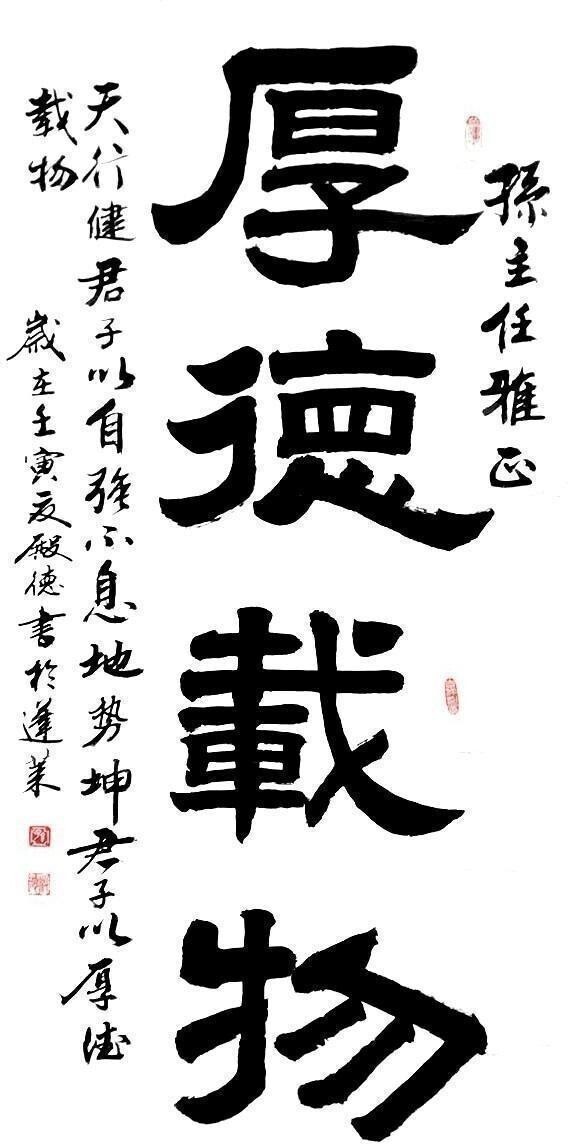 孫主任雅正
厚徳載物
天行健君子以自強不息地势坤君子以厚德
載物
歲在壬寅夏殿徳書於蓬莱